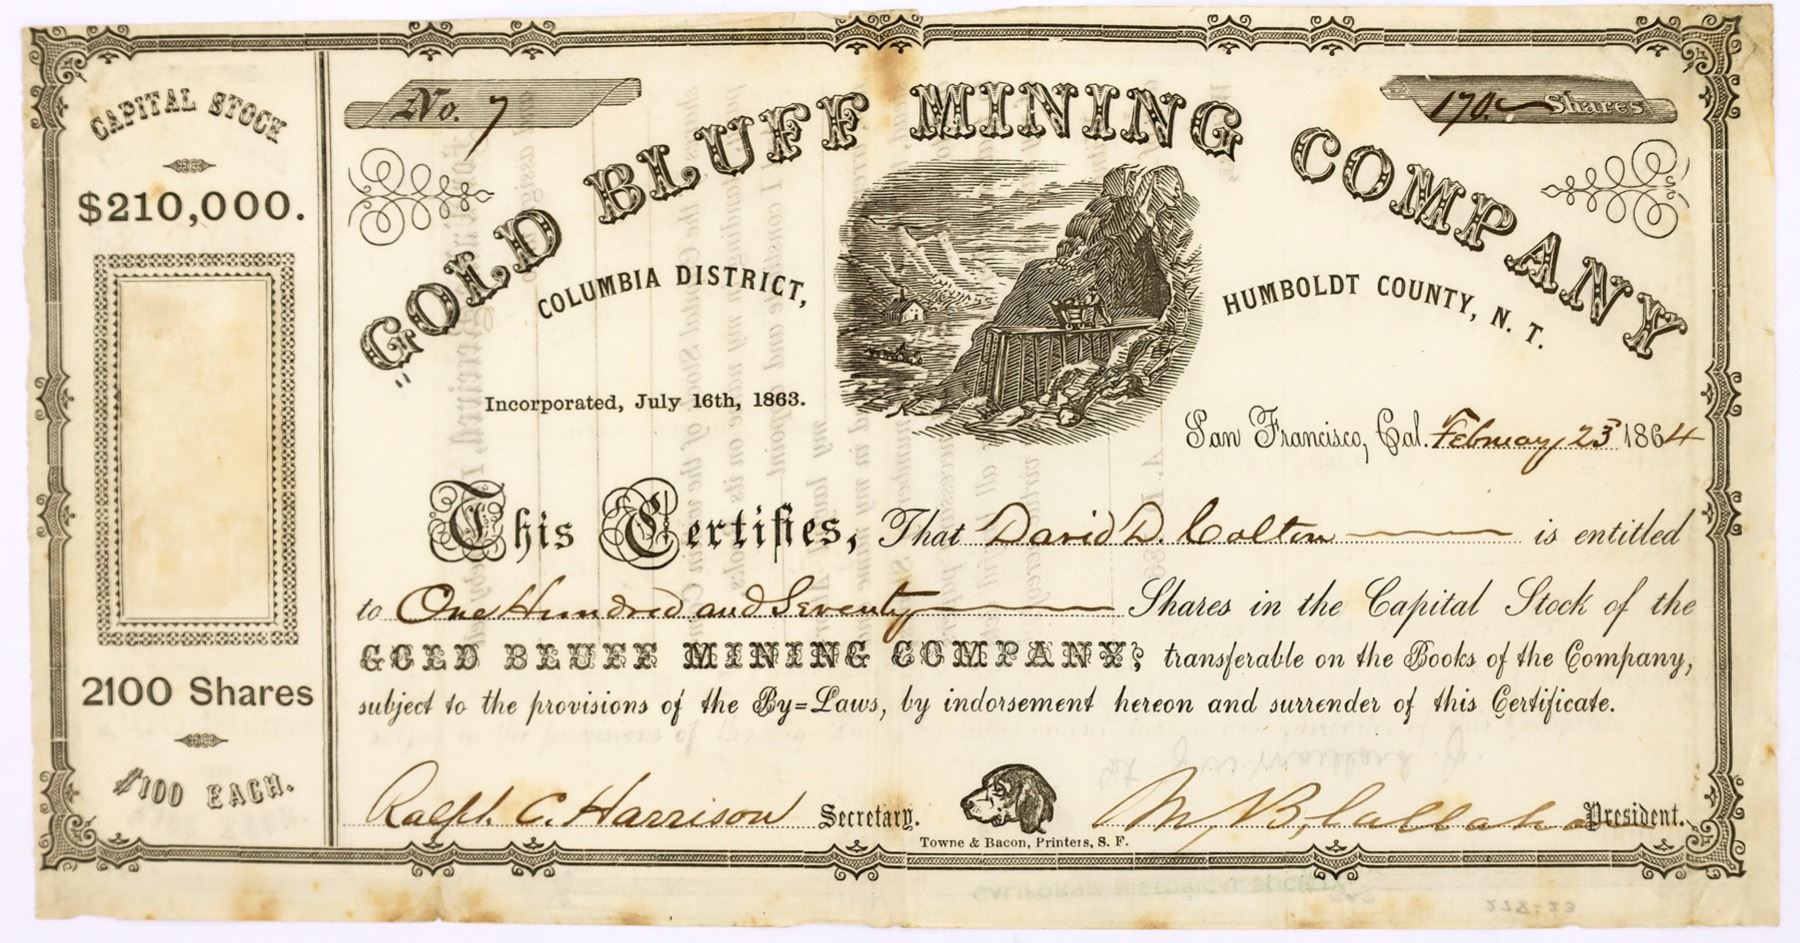 CAPITAL STOCK
$210,000.
2100 Shares
$100 EACH.
No. 7
170. Shares
"GOLD BLUFF MINING COMPANY"
COLUMBIA DISTRICT,
HUMBOLDT COUNTY, N. T.
Incorporated, July 16th, 1863.
San Francisco, Cal. February 23 1864
This Certifies, That David D. Colton is entitled
to One Hundred and Seventy Shares in the Capital Stock of the
GOLD BLUFF MINING COMPANY, transferable on the Books of the Company,
subject to the provisions of the By=Laws, by indorsement hereon and surrender of this Certificate.
Ralph. C. Harrison Secretary.
M, B, Callahan President.
Towne & Bacon, Printers, S. F.
CALIFORNIA HISTORICAL SOCIETY